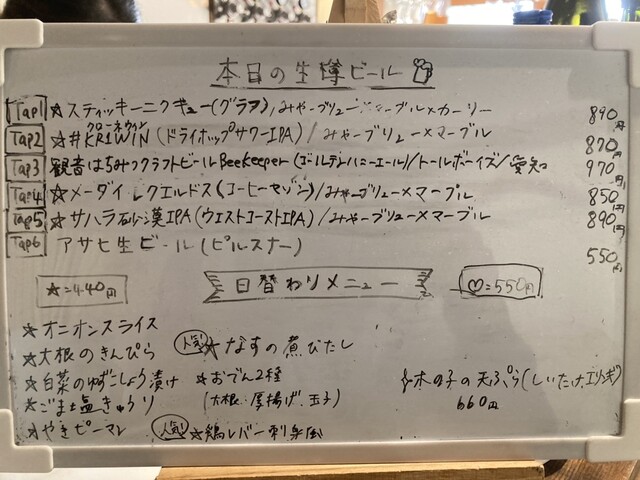 本日の生樽ビール
Tap1 ☆スティッキーニクキュー(グラフ)/みやーブリュー×マーブル×カーリー 890円
クローネウィン
Tap2 ☆#KR1WIN(ドライホップサワーIPA)/みやーブリュー×マーブル 870円
Tap3 観音はちみつクラフトビールBeekeeper(ゴールデンハニーエール)/トールボーイズ/愛知 970円
Tap4 ☆メーデイ クエルドス(コーヒーセゾン)/みやーブリュー×マーブル 850円
Tap5 ☆サハラ砂漠IPA(ウエストコーストIPA)/みやーブリュー×マーブル 890円
Tap6 アサヒ生ビール(ピルスナー) 550円
☆=440円 日替わりメニュー ♡=550円
☆オニオンスライス
☆大根のきんぴら
☆白菜のゆずこしょう漬け
☆ごま塩きゅうり
☆やきピーマン
人気! ☆なすの煮びたし
☆おでん2種
(大根、厚揚げ、玉子)
人気! ☆鶏レバー刺身風
木の子の天ぷら(しいたけ、エリンギ)
660円